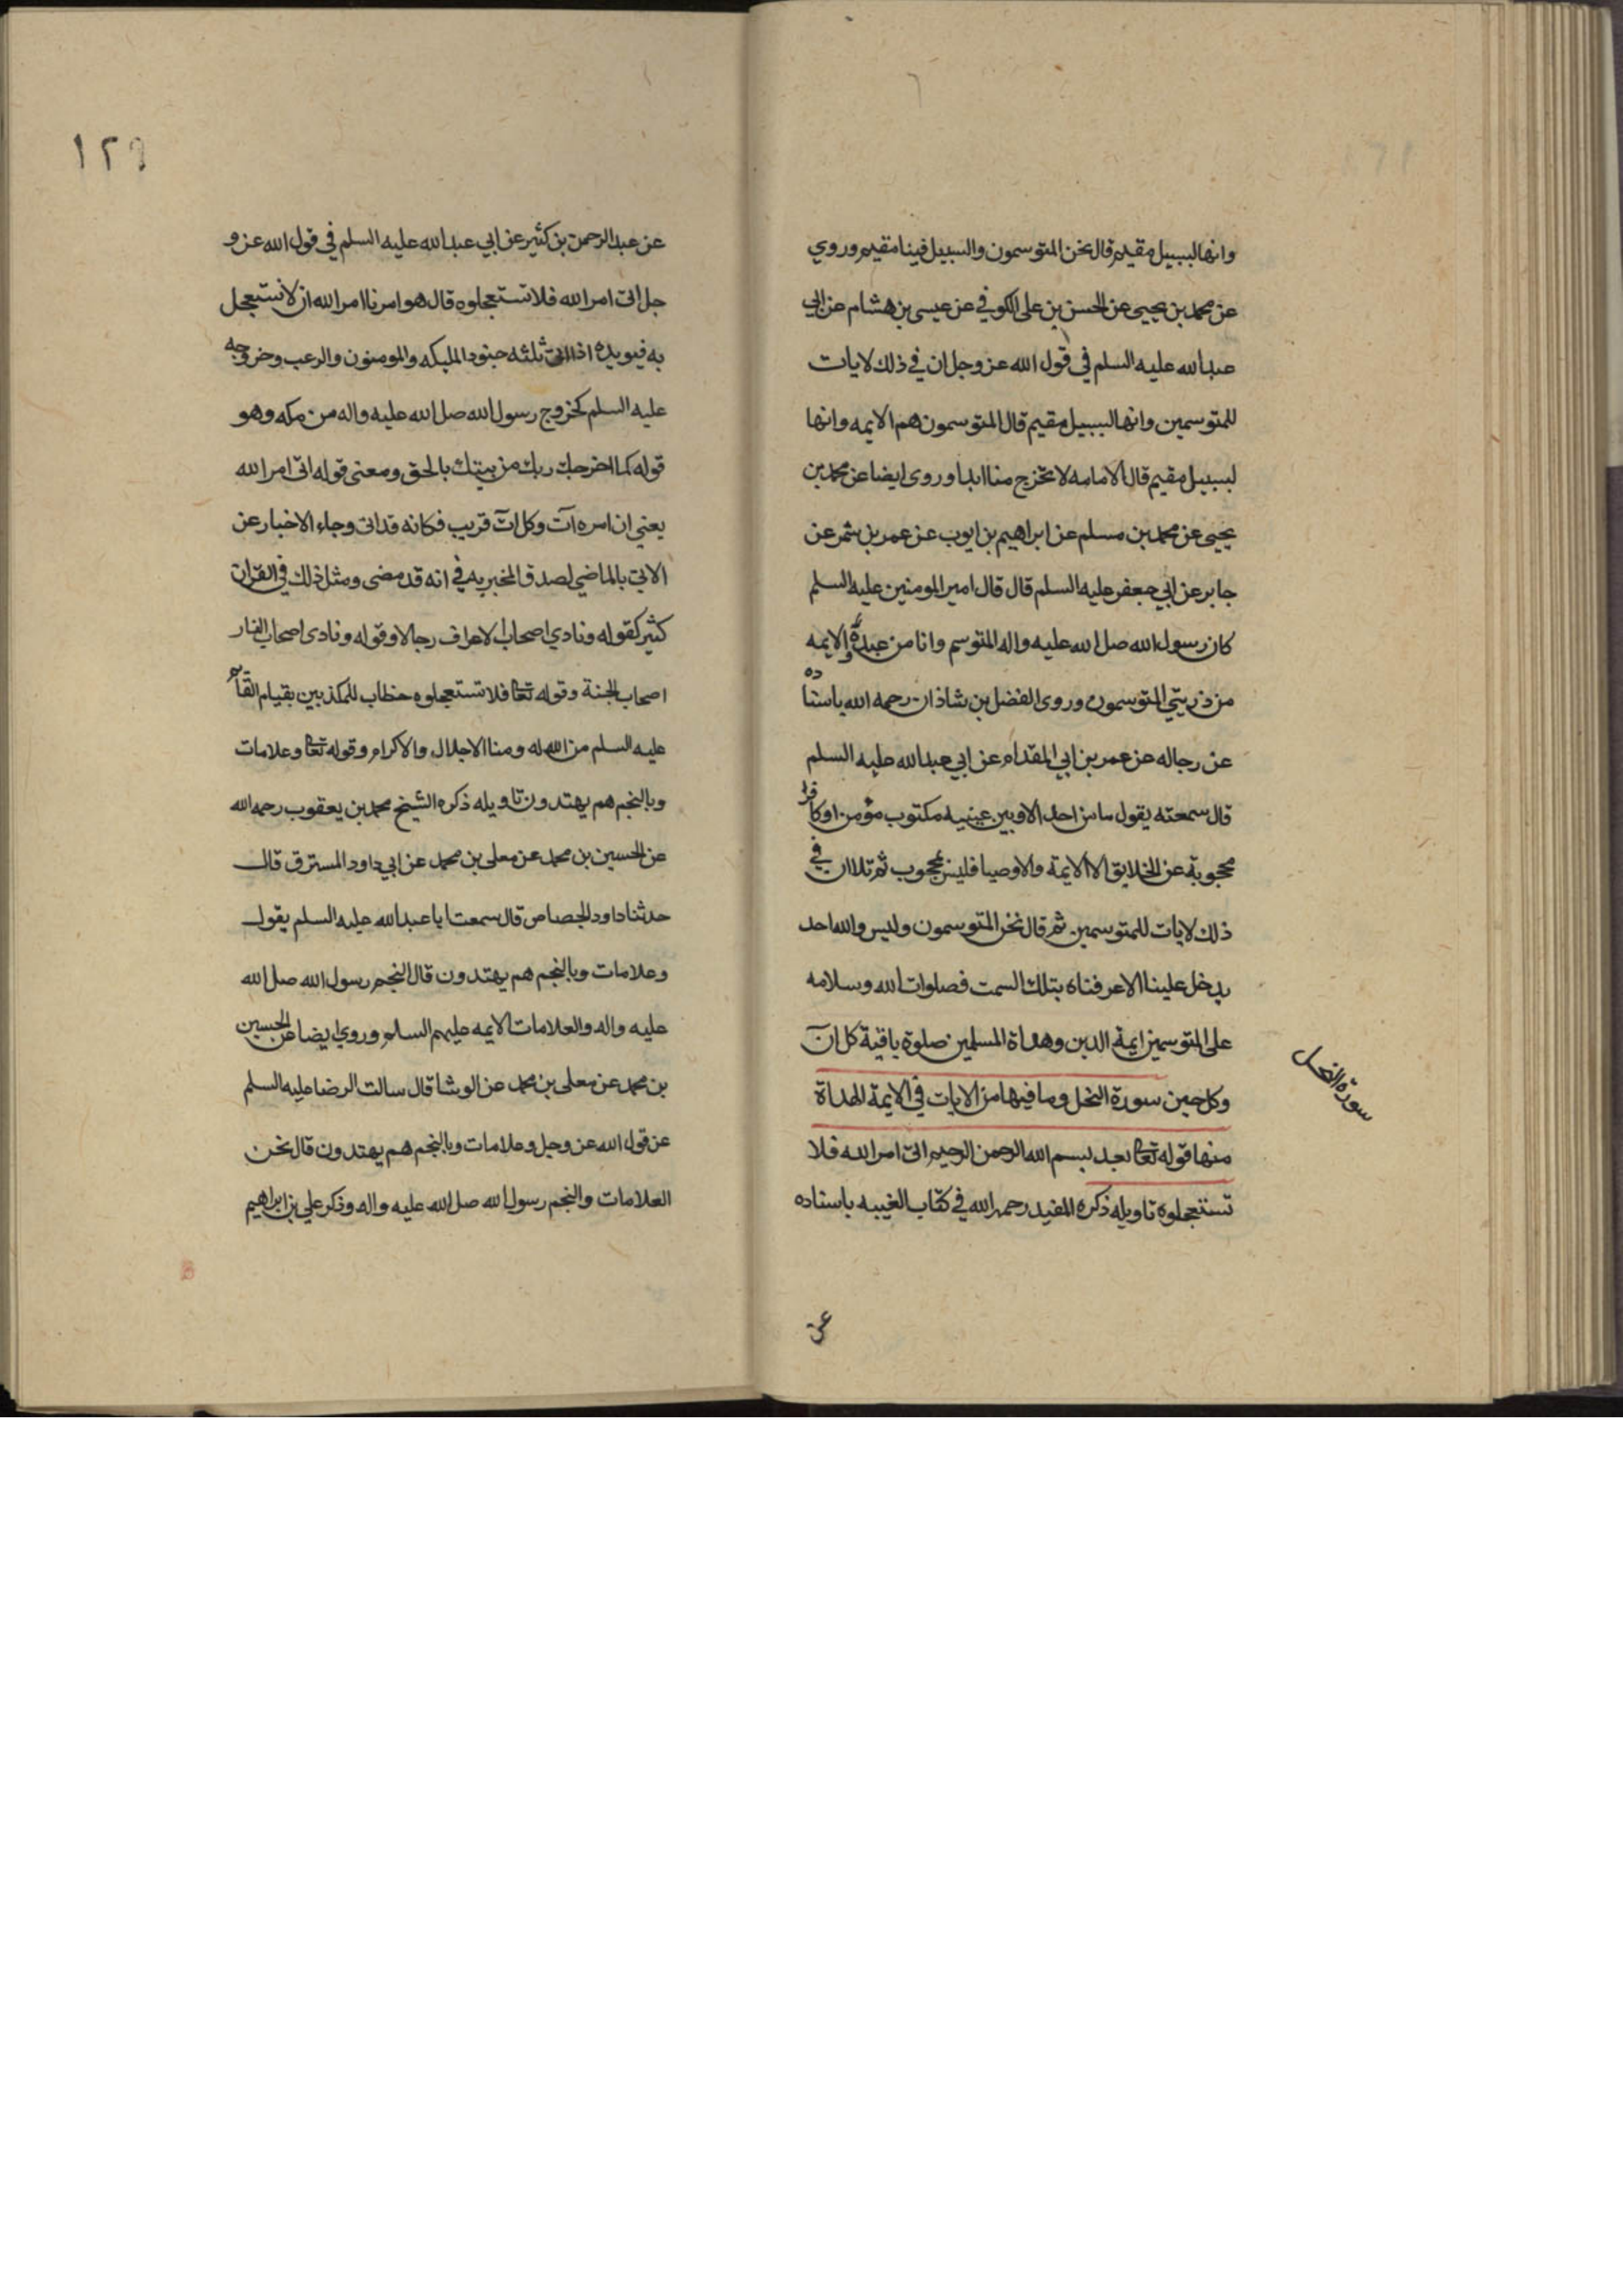 وانها لبسبيل مقيم قال نحن المتوسمون والسبيل فينا مقيم وروي
عن محمد بن يحيى عن الحسن بن على الكوفي عن عيسى بن هشام عن ابي
عبدالله عليه السلم في قول الله عز وجل ان في ذلك لايات
للمتوسمين وانها لبسبيل مقيم قال المتوسمون هم الايمه وانها
لبسبيل مقيم قال الامامه لا تخرج منا ابدا وروى ايضا عن محمد بن
يحيى عن محمد بن مسلم عن ابراهيم بن ايوب عن عمر بن شمر عن
جابر عن ابي جعفر عليه السلم قال قال امير المومنين عليه السلم
كان رسول الله صل الله عليه واله المتوسم وانا من عبده والايمه
من ذريتي المتوسمون وروى الفضل بن شاذان رحمه الله باسناده
عن رجاله عن عمر بن ابي المقدام عن ابي عبدالله عليه السلم
قال سمعته يقول ما من احد الا وبين عينيه مكتوب مؤمن او كافر
محجوبة عن الخلايق الا الايمة والاوصيا فليس بمحجوب ثم تلا ان في
ذلك لايات للمتوسمين ثم قال نحن المتوسمون وليس والله احد
يدخل علينا الا عرفناه بتلك السمت فصلوات الله وسلامه
على المتوسمين ايمة الدين وهداة المسلمين صلوة باقية كل ان
وكل حين سورة النحل وما فيها من الايات في الايمة الهداة
سورة النحل
منها قوله تعا بعد بسم الله الرحمن الرحيم اتى امر الله فلا
تستعجلوه تاويله ذكره المفيد رحمه الله في كتاب الغيبه باسناده
عن
١٢٩
عن عبد الرحمن بن كثير عن ابي عبدالله عليه السلم في قول الله عز و
جل اتى امر الله فلا تستعجلوه قال هو امرنا امر الله ان لا نستعجل
به فيويده اذا اتى ثلثه جنود الملبكه والمومنون والرعب وخروجه
عليه السلم كخروج رسول الله صل الله عليه واله من مكه وهو
قوله كما اخرجك ربك من بيتك بالحق ومعنى قوله اتى امر الله
يعني ان امره آت وكل آت قريب فكانه قد اتى وجاء الاخبار عن
الاتي بالماضي لصدق المخبر به في انه قد مضى ومثل ذلك في القران
كثير كقوله ونادي اصحاب الاعراف رجالا وقوله ونادى اصحاب النار
اصحاب الجنة وقوله تعا فلا تستعجلوه خطاب للمكذبين بقيام القائم
عليه السلم من الله له ومنا الاجلال والاكرام وقوله تعا وعلامات
وبالنجم هم يهتدون تاويله ذكره الشيخ محمد بن يعقوب رحمه الله
عن الحسين بن محمد عن معلى بن محمد عن ابي داود المسترق قال
حدثنا داود الجصاص قال سمعت ابا عبدالله عليه السلم يقول
وعلامات وبالنجم هم يهتدون قال النجم رسول الله صل الله
عليه واله والعلامات الايمه عليهم السلم وروي ايضا عن الحسين
بن محمد عن معلى بن محمد عن الوشا قال سالت الرضا عليه السلم
عن قول الله عز وجل وعلامات وبالنجم هم يهتدون قال نحن
العلامات والنجم رسول الله صل الله عليه واله وذكر علي بن ابراهيم